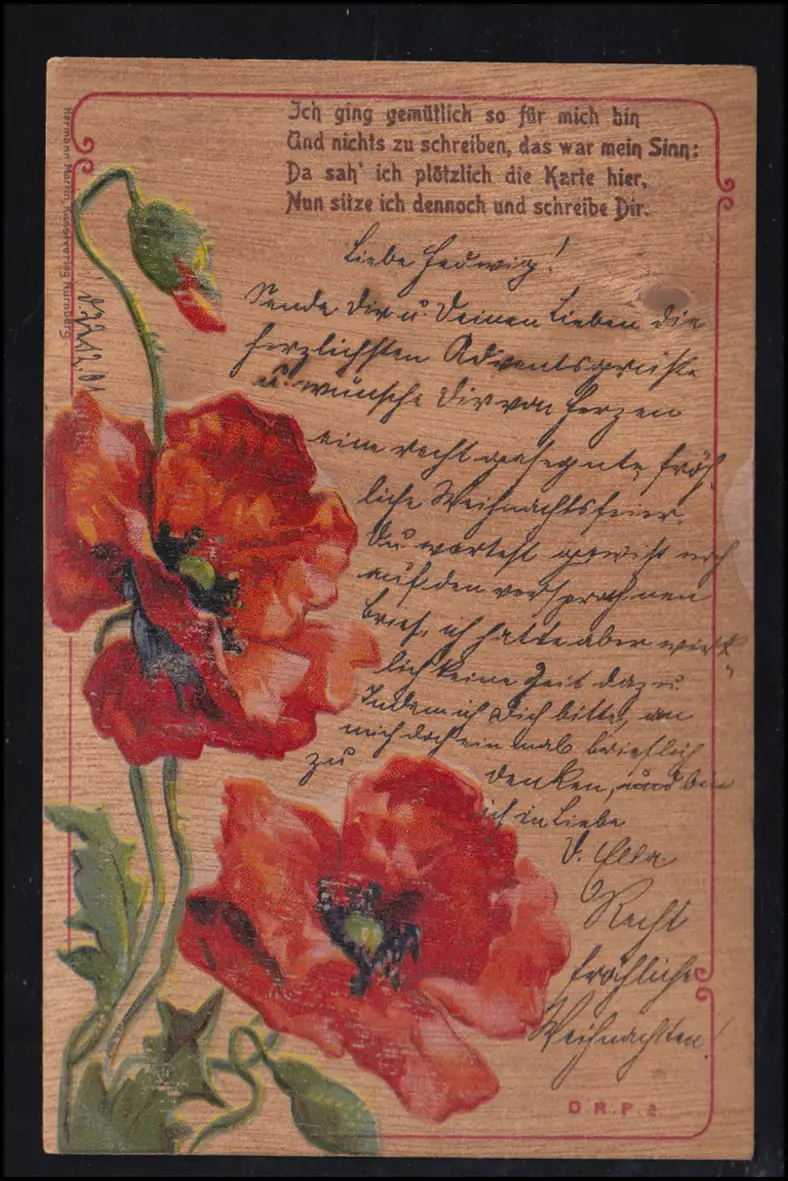 Ich ging gemütlich so für mich hin
Und nichts zu schreiben, das war mein Sinn:
Da sah' ich plötzlich die Karte hier,
Nun sitze ich dennoch und schreibe Dir.
Hermann Martin, Kunstverlag Nürnberg
d. 22.12.01
Liebe Hedwig!
Sende Dir u. Deinen Lieben die
herzlichsten Adventsgrüße
u. wünsche Dir von Herzen
eine recht gesegnete, fröh-
liche Weihnachtsfeier.
Du wartest gewiß noch
auf den versprochnen
Brief, ich hatte aber wirk-
lich keine Zeit dazu.
Indem ich Dich bitte, an
mich doch einmal brieflich
zu denken, und bin
ich in Liebe
D. Ella.
Recht
fröhliche
Weihnachten!
D. R. P. a.